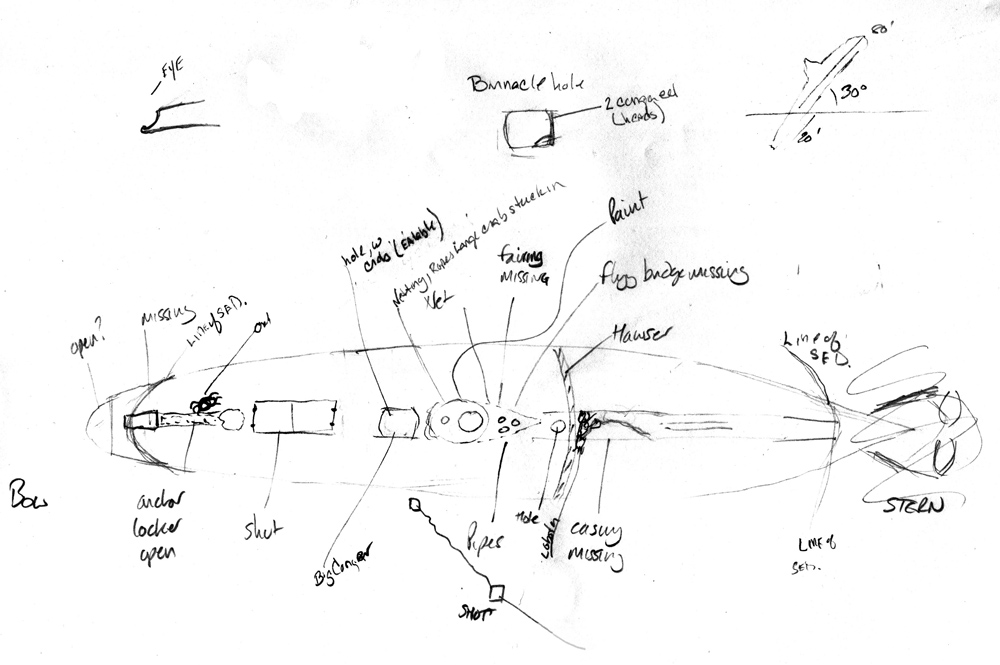 EYE
Binnacle hole
2 conger eel
(heads)
50'
30°
20'
hole, w
ends
Netting, Ropes
crab stuck in
fairing
MISSING
Paint
flyg bridge missing
open?
MISSING
LINE of SED.
Hawser
Line of
SED.
Bow
anchor
locker
open
shut
Big Conger
Pipes
Hole
Lobster
casing
missing
STERN
LINE of
SED.
SHOTT